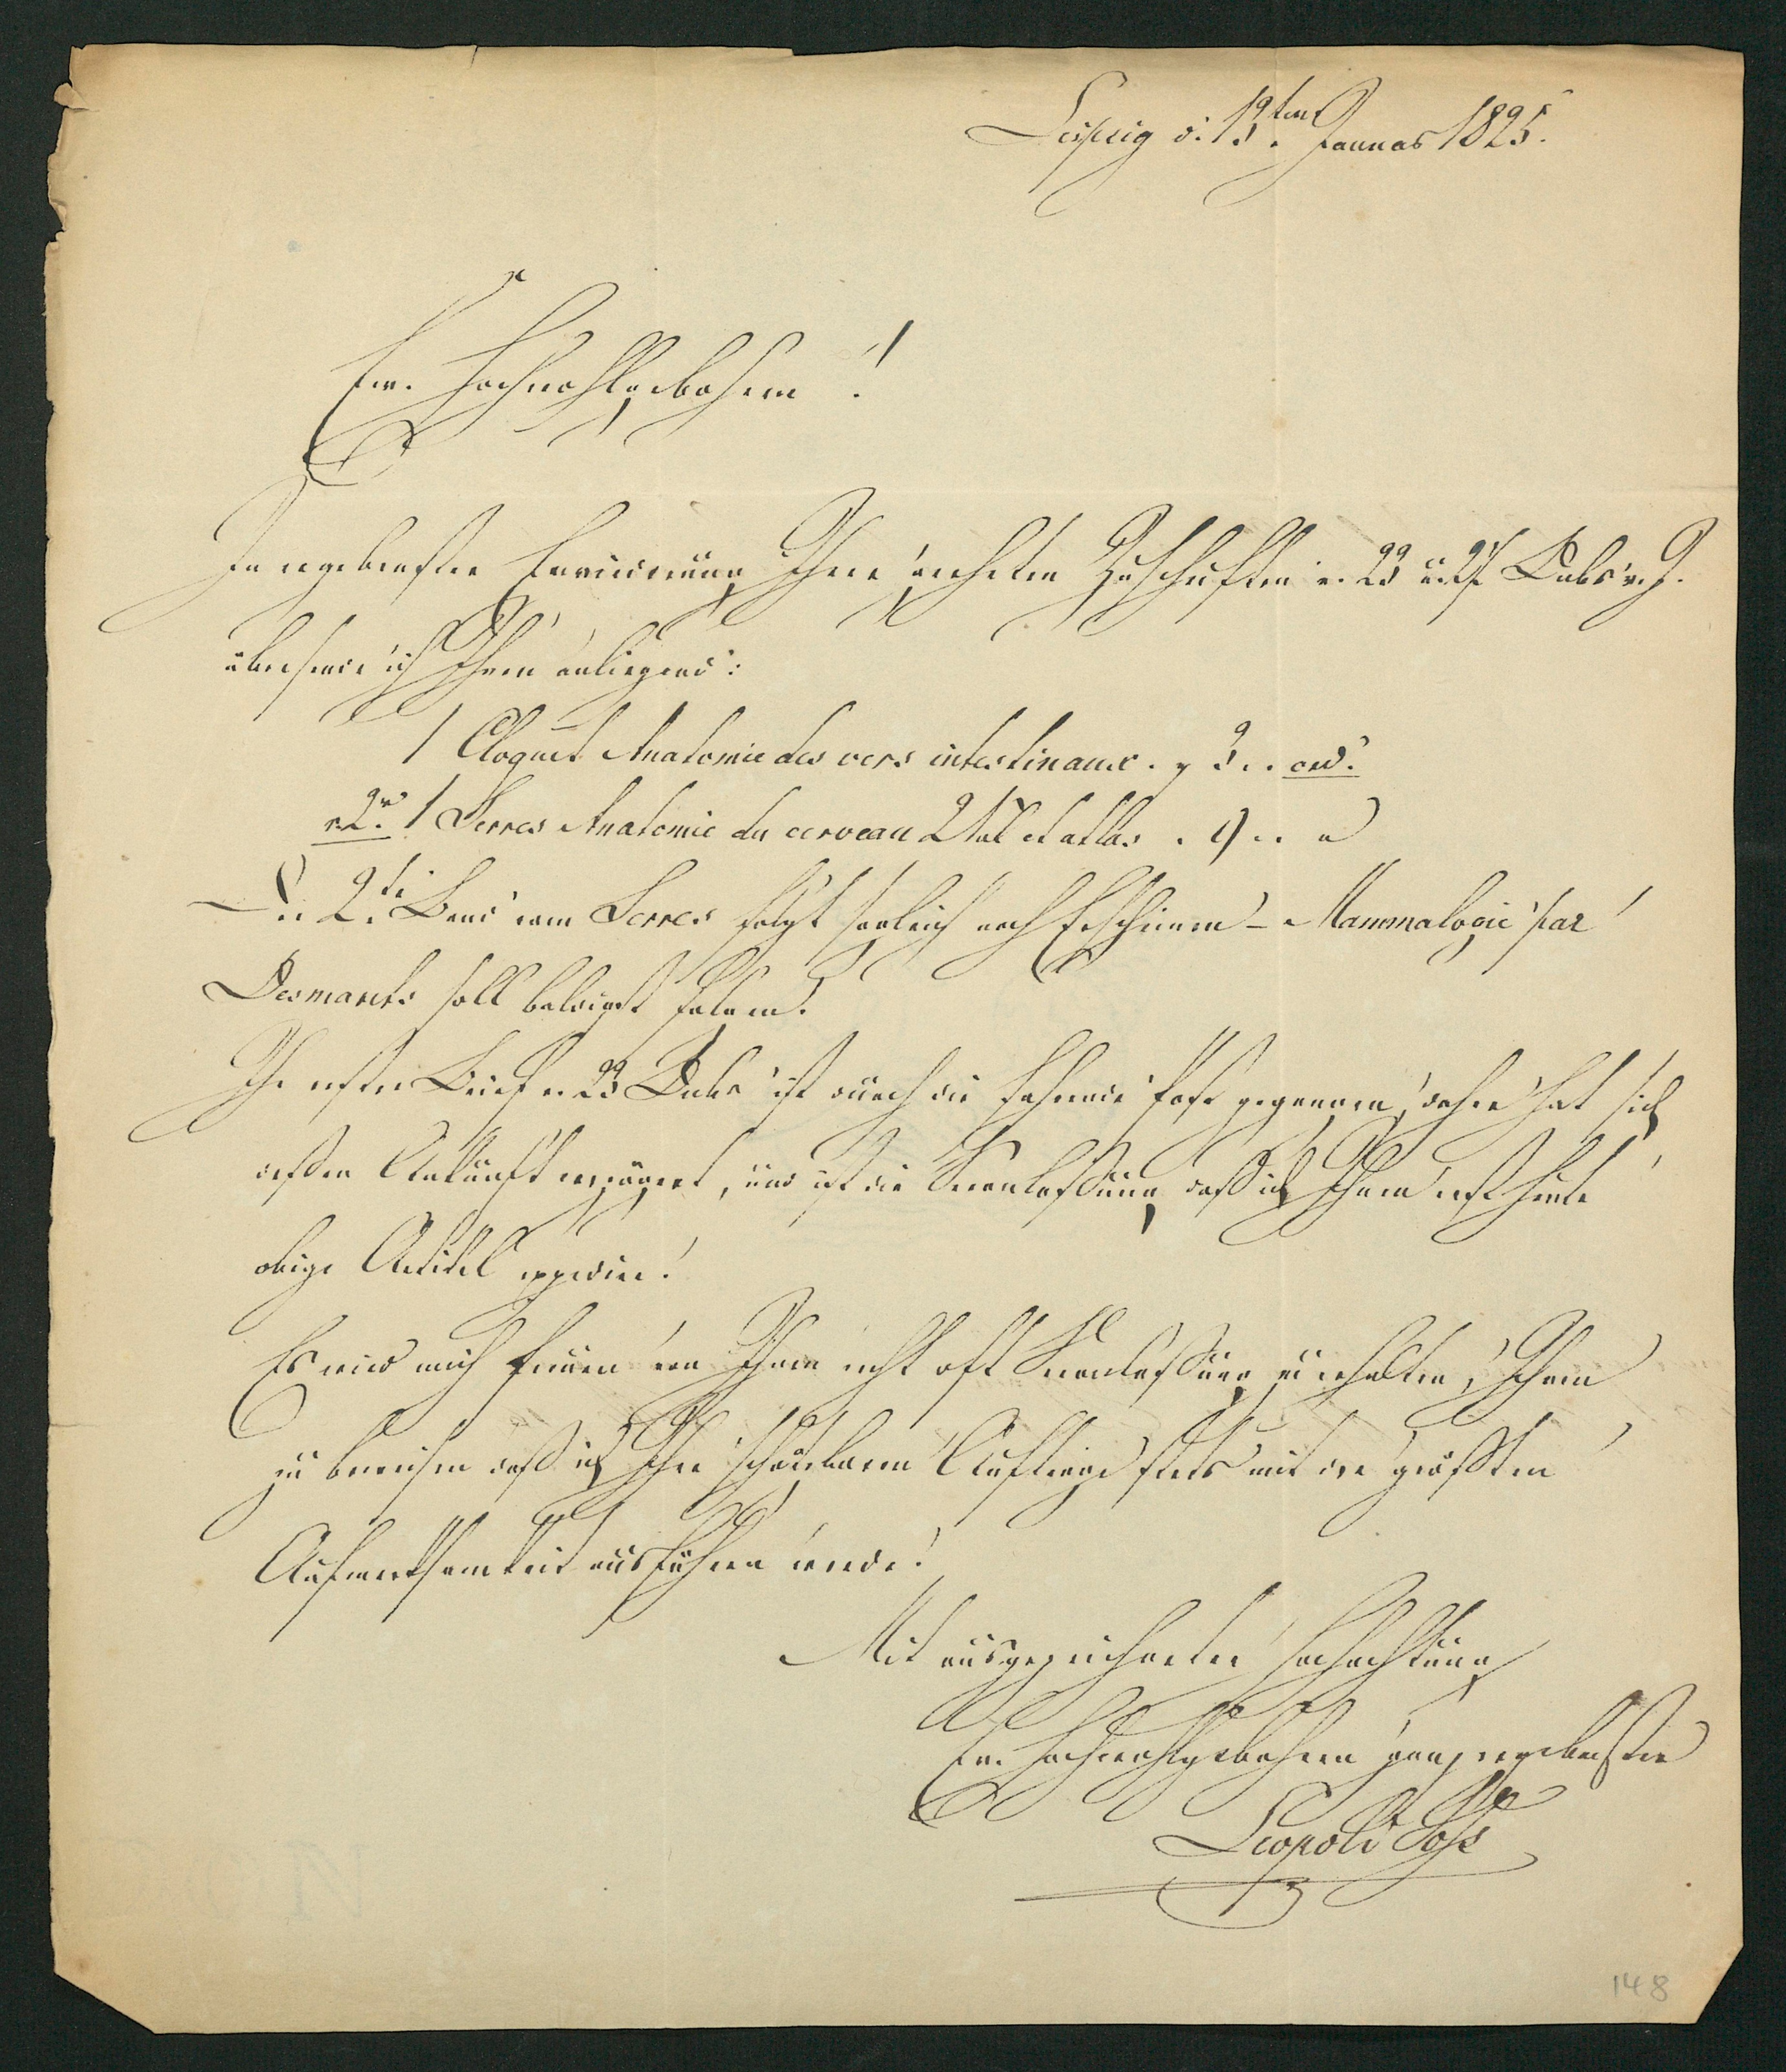 Leipzig d. 13ten Januar 1825.
Ew. Hochwohlgebohren!
In ergebenster Erwiederung Ihrer geehrten Zuschriften v. 23 u. 27 Dcbr v. J.
übersende ich Ihnen anliegend:
1 Cloquet Anatomie des vers intestinaux . 3 . . ord.
1 Serres Anatomie du cerveau 2 Vol et atlas . 9 . .
Der 2te Band vom Serres folgt sogleich nach Erscheinen – Mammalogie par
Desmarets soll baldigst folgen.
Ihr erster Brief v. 23 Dcbr ist durch die fahrende Post gegangen, daher hat sich
dessen Ankunft verzögert, und ist die Veranlassung daß ich Ihnen erst heute
obige Artikel expedire!
Es wird mich freuen von Ihnen recht oft Veranlassung zu erhalten, Ihnen
zu beweisen daß ich Ihre schätzbaren Aufträge stets mit der größten
Aufmerksamkeit ausführen werde!
Mit ausgezeichneter Hochachtung
Ew. Hochwohlgebohren ganz ergebenster
Leopold Voß
148